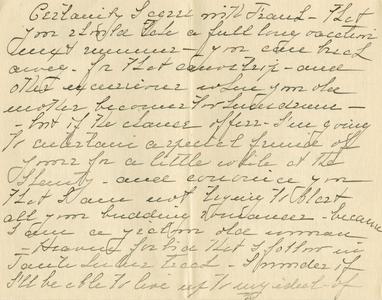 Certainly I agree with Frank - that
you should have a full long vacation
next summer - you can break
away - for that canoe trip - and
other excursions when your old
mother becomes too
- but if the chance offers - I'm going
to entertain a special friend of
yours for a little while at the
- and convince you
that I am not trying to blast
all your budding romances - because
I am a jealous old woman
- Heaven forbid that I follow in
Aunt track - I wonder if
I'll be able to live up to my ideal of